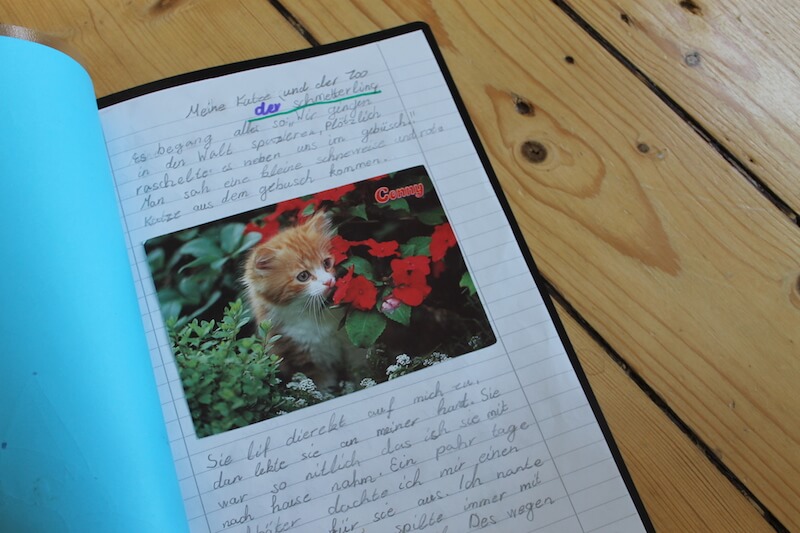 Meine Katze und der Zoo
der schmetterling
Es begang alles so: Wir gengen
in den Walt spazieren, Plötzlich
raschelte es neben uns im gebüsch."
Man sah eine kleine schneweise und rote
Katze aus dem gebusch kommen.
Conny
Sie lif dierekt auf mich zu,
dan lekte sie an meiner hant. Sie
war so nitlich das ich sie mit
nach hause nahm. Ein pahr tage
dachte ich mir einen
für sie aus. Ich nante
spilte immer mit
Des wegen